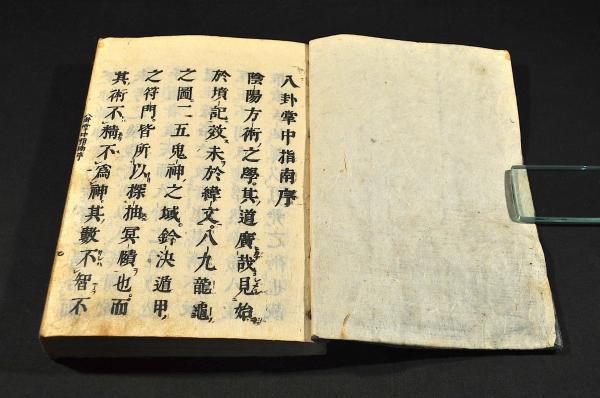 八卦掌中指南序
陰陽方術之學其道廣哉見始
於墳記效未於緯文八九龍龜
之圖一五鬼神之域鈐決遁甲
之符門皆所以探抽冥賾也而
其術不精不爲神其數不智不
八卦掌中指南序